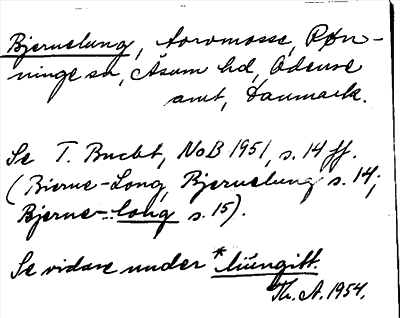 Bjernelung, torvmosse, Røn-
ninge sn, Åsum hd, Odense
amt, Danmark.
Se T. Bucht, NoB 1951, s. 14 ff.
(Bierne-Long, Bjernelung s. 14;
Bjerne-long s. 15).
Se vidare under *liungitt.
Th. A. 1954.